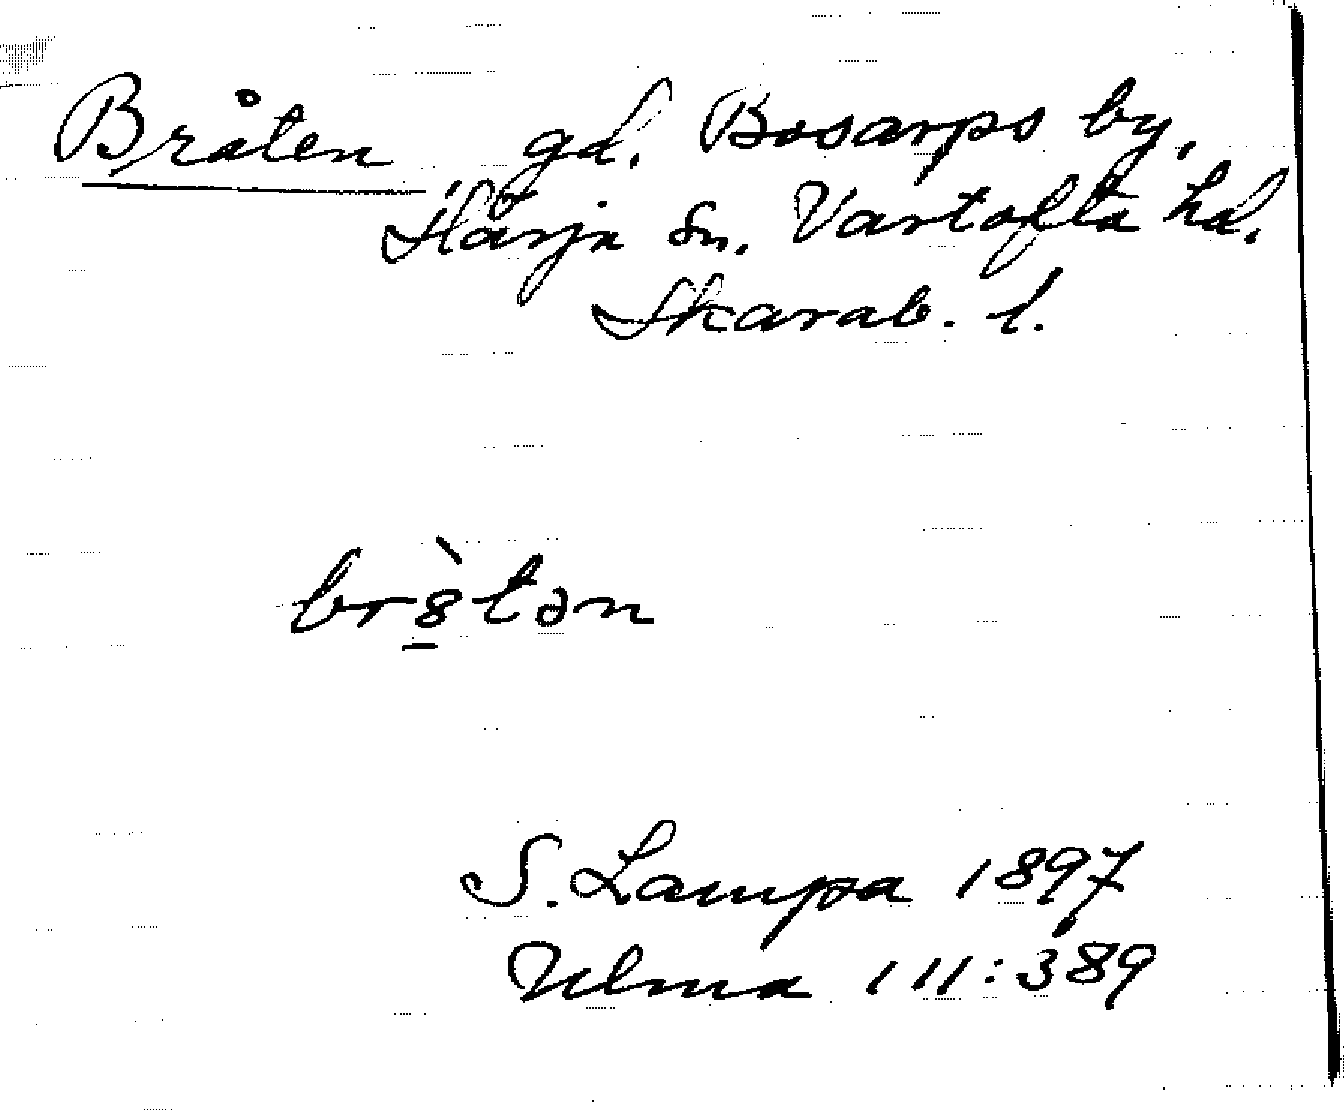 Bråten gd. Bosarps by,
Härja sn. Vartofta hd.
Skarab. l.
br8̲̀tən
S. Lampa 1897
Ulma 111:389